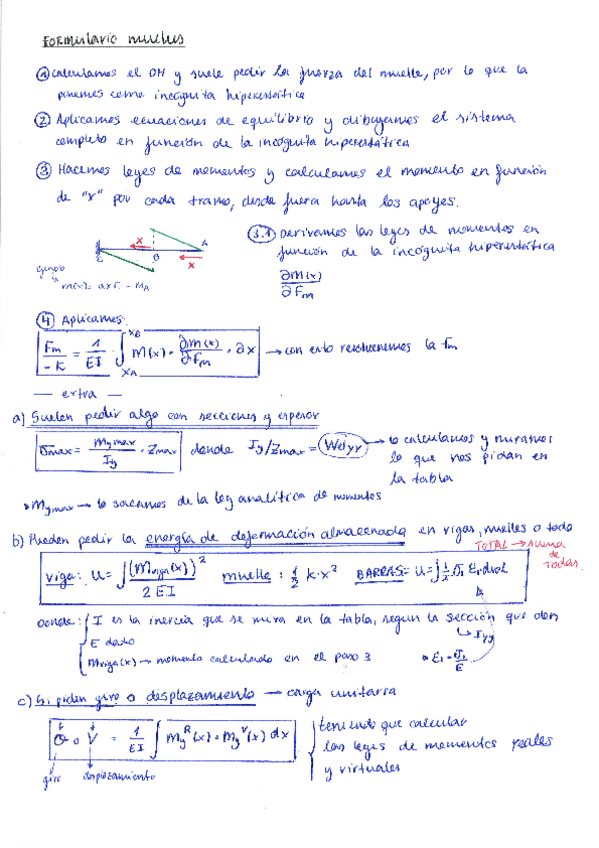 FORMulario muelles
① Calculamos el GH y suele pedir la fuerza del muelle, por lo que la
ponemos como incógnita hiperestática
② Aplicamos ecuaciones de equilibrio y dibujamos el sistema
completo en función de la incógnita hiperestática
③ Hacemos leyes de momentos y calculamos el momento en función
de "x" por cada tramo, desde fuera hasta los apoyos.
3.1 Derivamos las leyes de momentos en
función de la incógnita hiperestática
∂M(x)
∂Fm
x
x
C B A
ejemplo
④ Aplicamos:
Fm/-k = 1/EI · ∫ XA XB M(x) · ∂M(x)/∂Fm · ∂x → con esto resolvemos la Fm
— extra —
a) Suelen pedir algo con secciones y espesor
σmax = Mymax/Iy · Zmax donde Iy/Zmax = Welyy → lo calculamos y miramos
lo que nos pidan en
la tabla
• Mymax → lo sacamos de la ley analítica de momentos
b) Pueden pedir la energía de deformación almacenada en vigas, muelles o todo
TOTAL → suma
de
todas
viga: U = ∫ (Mviga(x))²/2EI muelle: 1/2 k·x² BARRAS = U = ∫ 1/2 σ₁ E₁ dvol
donde: I es la inercia que se mira en la tabla, según la sección que den
↳ Iyy
E dato
Mviga(x) → momento calculado en el paso 3 • E₁ = σ₁/E
c) Si piden giro o desplazamiento → carga unitaria
θ o V = 1/EI ∫ MyR(x) · MyV(x) dx
teniendo que calcular
las leyes de momentos reales
y virtuales
giro desplazamiento